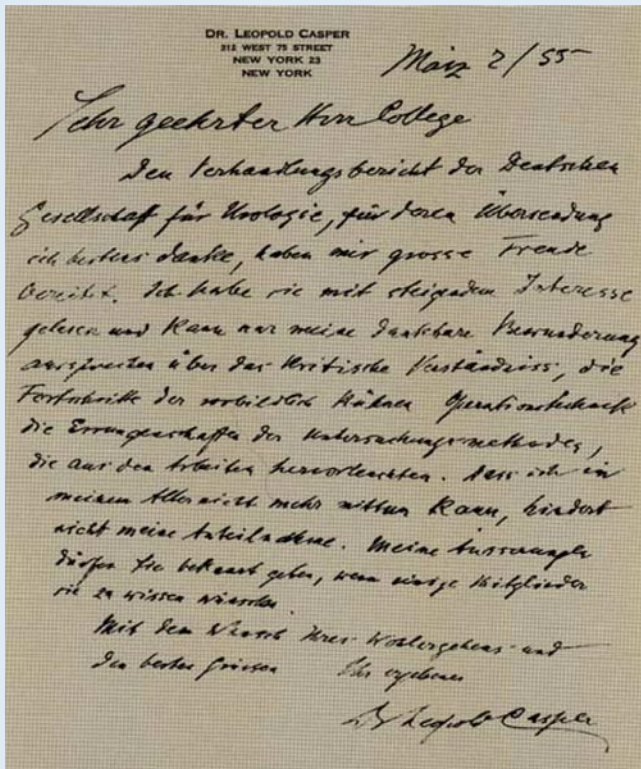 DR. LEOPOLD CASPER
212 WEST 75 STREET
NEW YORK 23
NEW YORK
März 2/55
Sehr geehrter Herr College
Den Verhandlungsbericht der Deutschen
Gesellschaft für Urologie, für deren Übersendung
ich bestens danke, haben mir grosse Freude
bereitet. Ich habe sie mit steigendem Interesse
gelesen und kann nur meine dankbare Bewunderung
aussprechen über das kritische Verständniss, die
Fortschritte der vorbildlich kühnen Operationstechnik
die Errungenschaften der Untersuchungsmethoden,
die aus den Arbeiten hervorleuchten. Dass ich in
meinem Alter nicht mehr mittun kann, hindert
nicht meine Anteilnahme. Meine Äusserungen
dürfen Sie bekannt geben, wenn einige Mitglieder
sie zu wissen wünschen.
Mit dem Wunsch Ihres Wohlergehens und
den besten Grüssen Ihr ergebener
Dr Leopold Casper